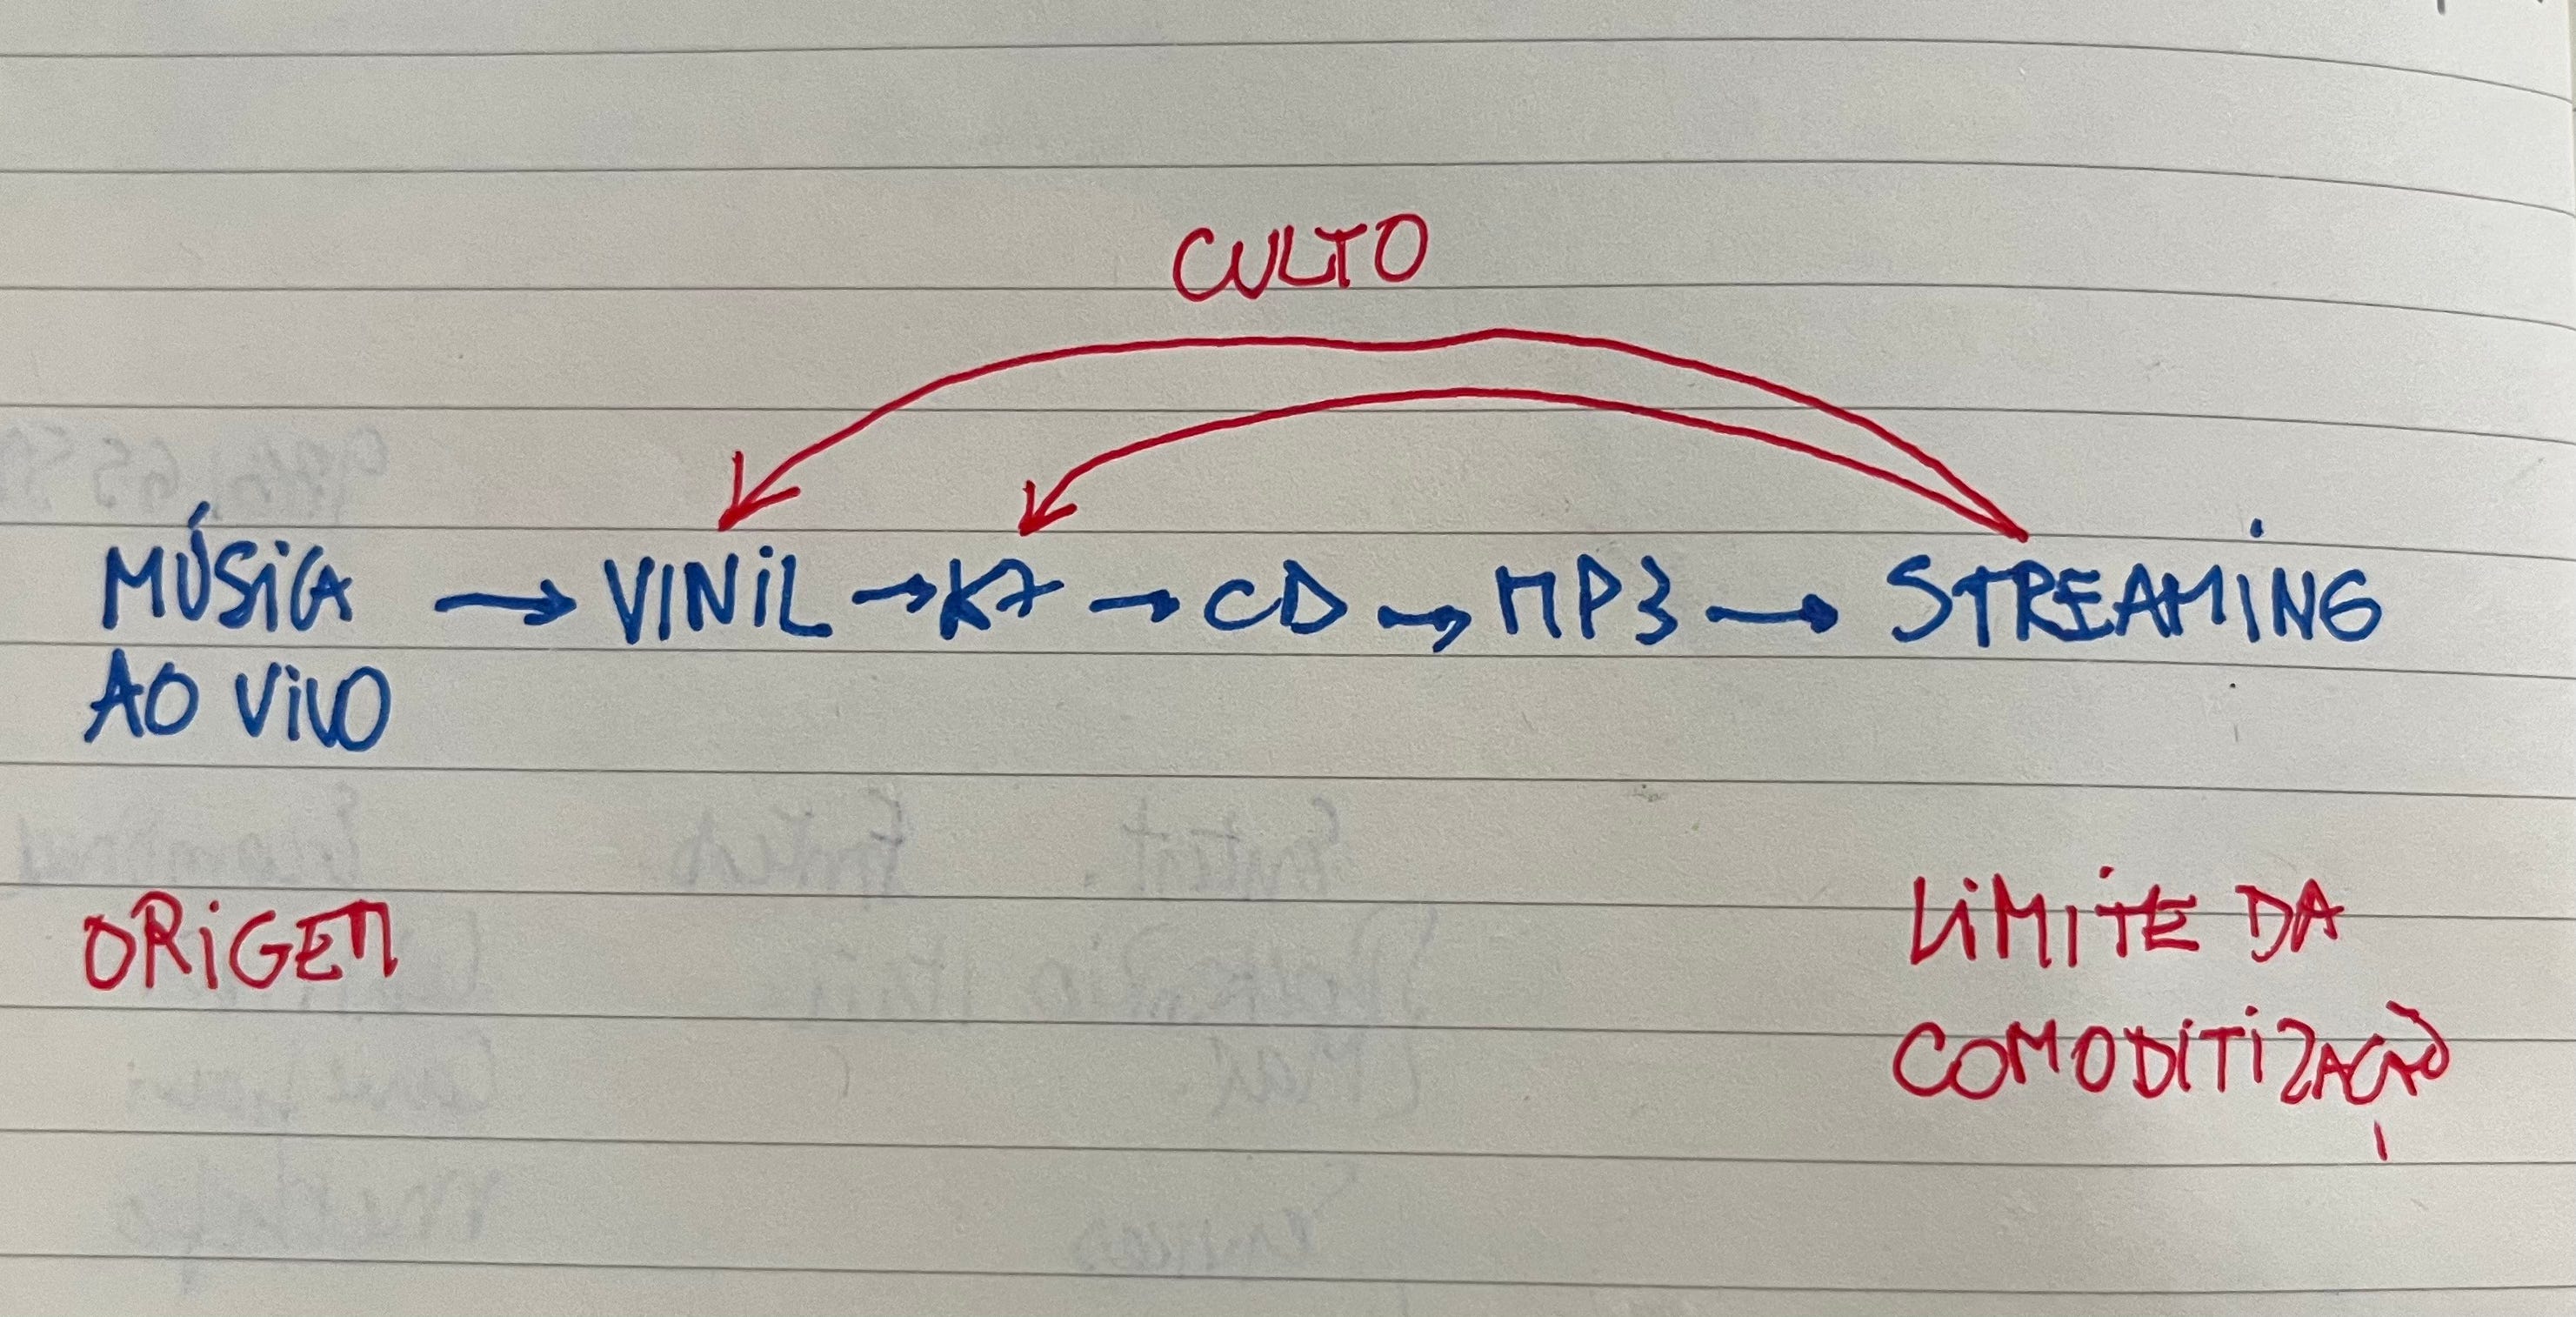 CULTO
MÚSICA → VINIL → K7 → CD → MP3 → STREAMING
AO VIVO
ORIGEM
LIMITE DA
COMODITIZAÇÃO